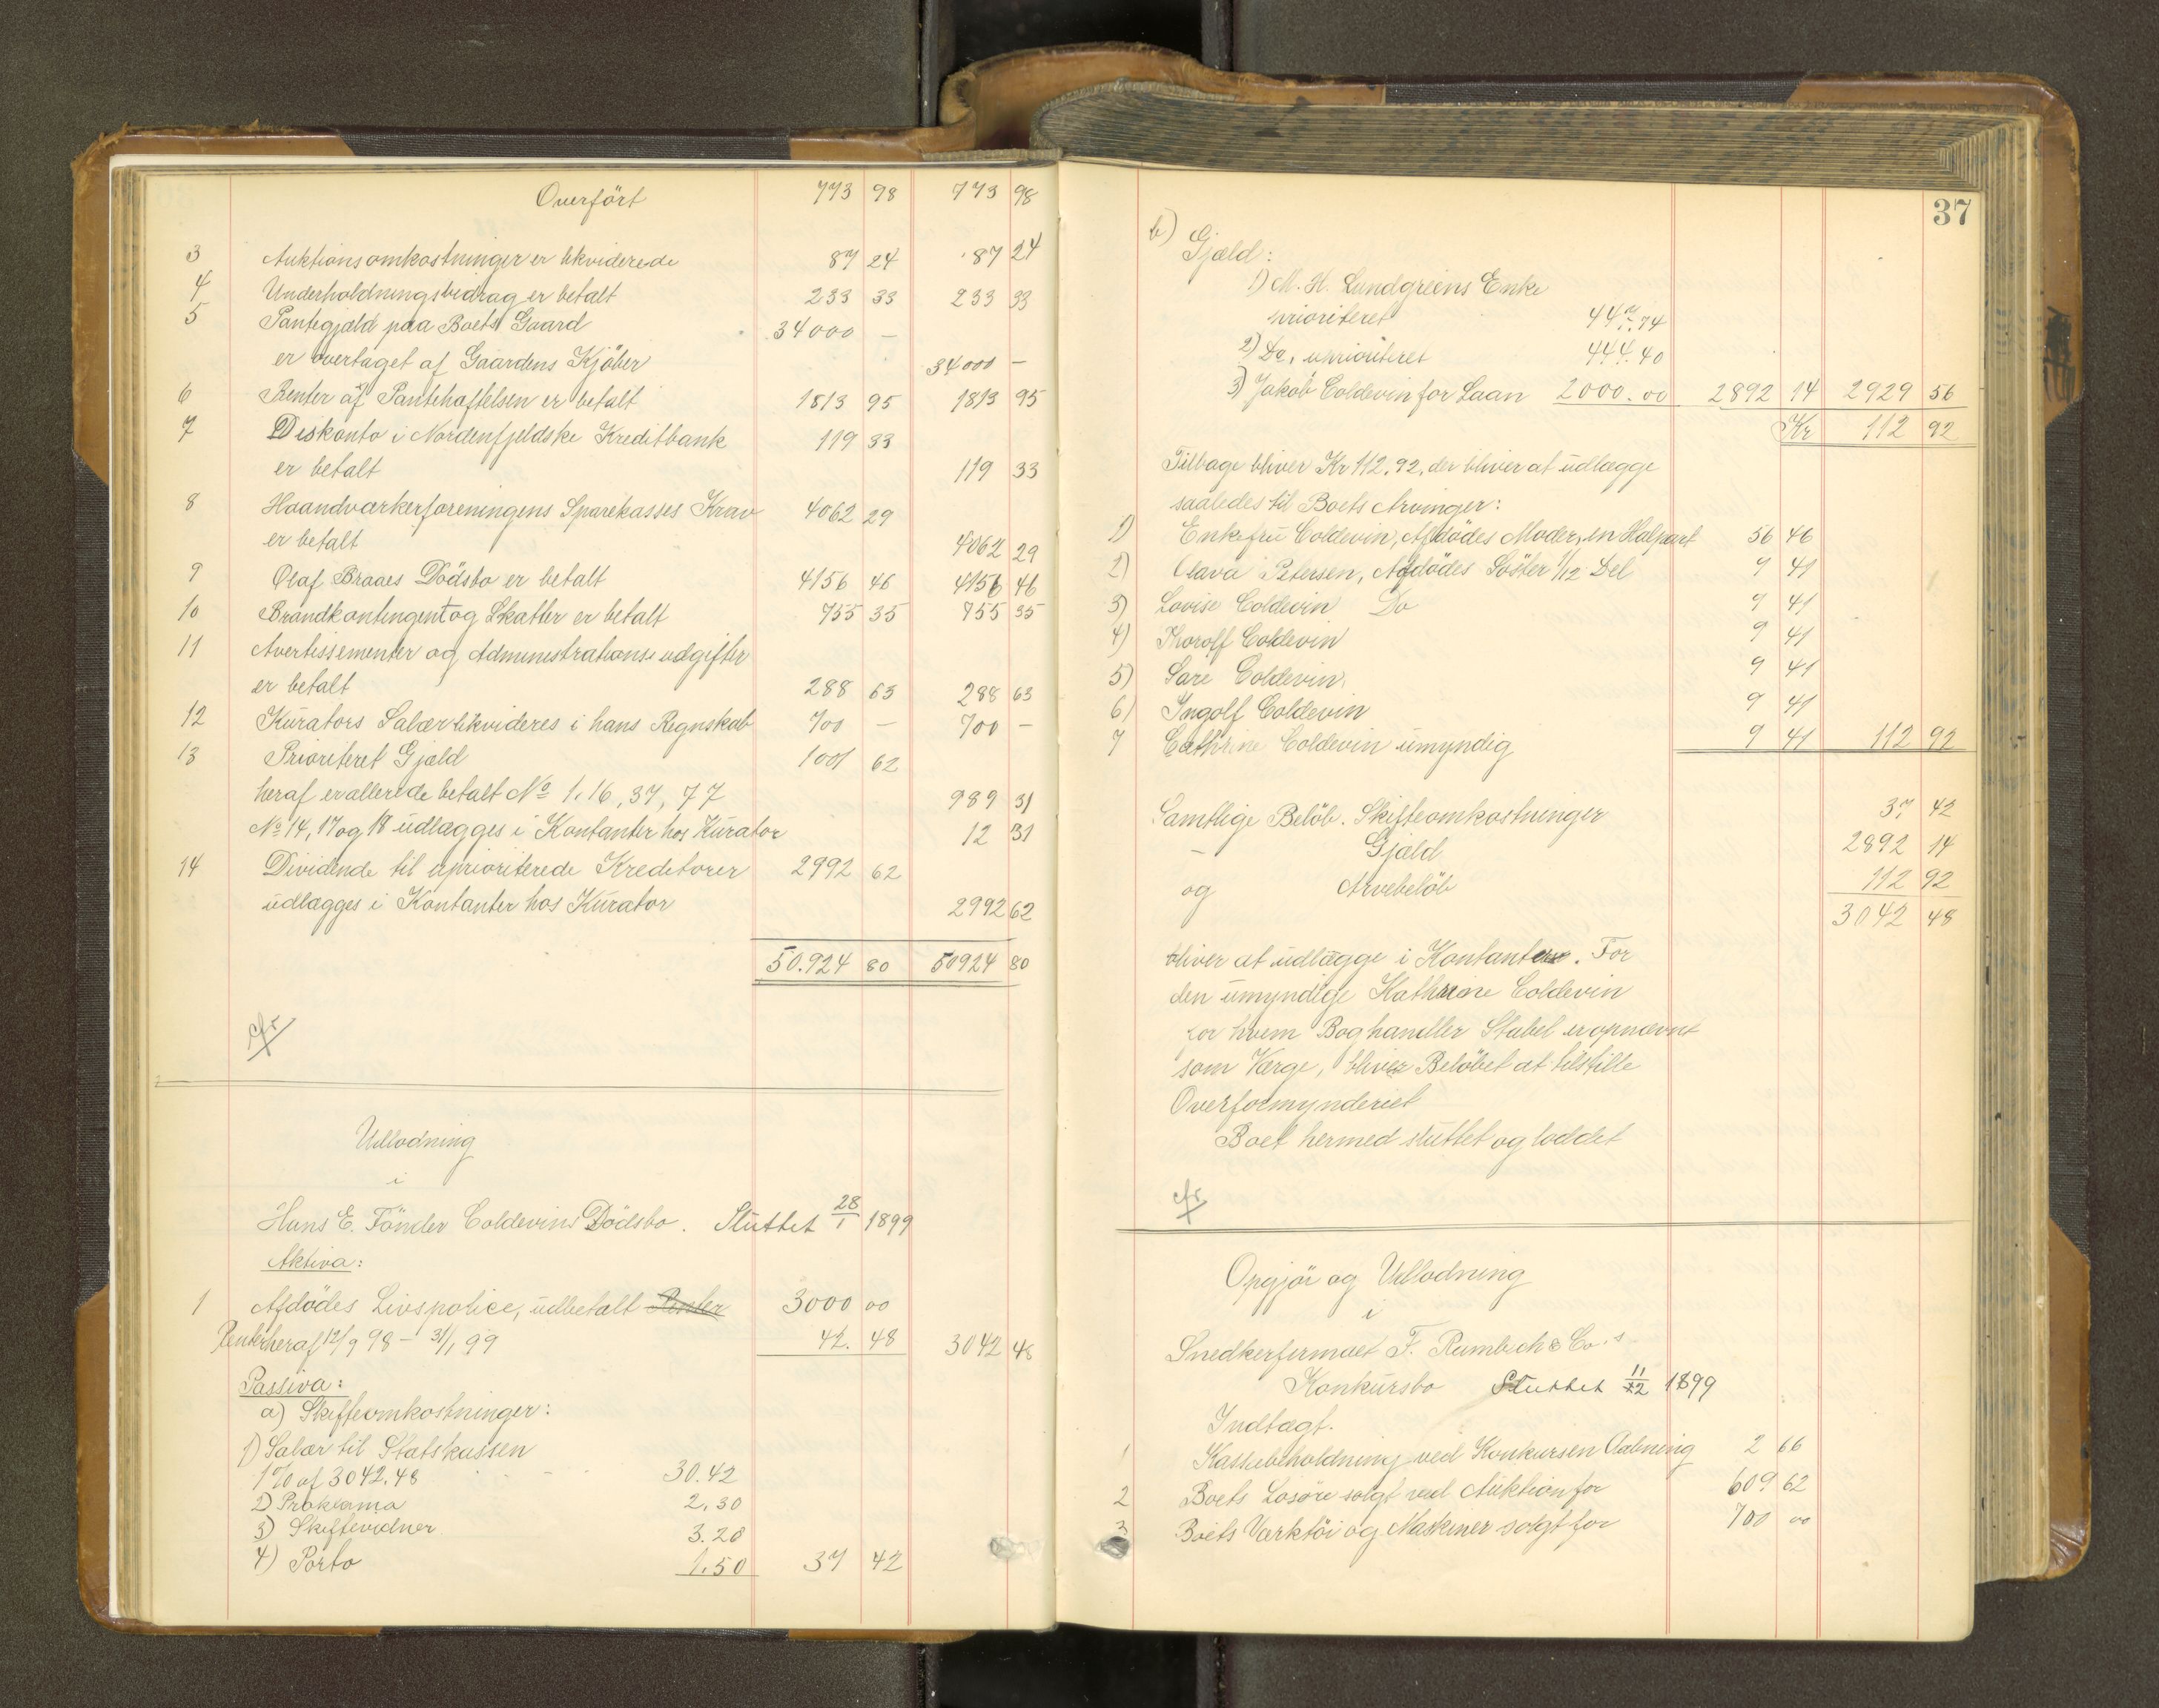 Overført 773 98 773 98
3 Auktionsomkostninger er likviderede 87 24 87 24
4 Underholdningsbidrag er betalt 233 33 233 33
5 Pantegjæld paa Boets Gaard 34000 –
er overtaget af Gaardens Kjøber 34000 –
6 Renter af Panteheftelsen er betalt 1813 95 1813 95
7 Diskonto i Nordenfjeldske Kreditbank 119 33
er betalt 119 33
8 Haandværkerforeningens Sparekasses Krav 4062 29
er betalt 4062 29
9 Olaf Braaes Dödsbo er betalt 4156 46 4156 46
10 Brandkontingent og Skatter er betalt 755 35 755 35
11 Avertissementer og Administrationsudgifter
er betalt 288 63 288 63
12 Kurators Salær likvideres i hans Regnskab 700 – 700 –
13 Prioriteret Gjæld 1001 62
heraf er allerede betalt No 1, 16, 37, 77 989 31
No 14, 17 og 18 udlægges i Kontanter hos Kurator 12 31
14 Dividende til uprioriterede Kreditorer 2992 62
udlægges i Kontanter hos Kurator 2992 62
50.924 80 50924 80
cfr
Udlodning
i
Hans E. Coldevins Dödsbo. Sluttet 28/1 1899
Aktiva:
1 Afdödes Livspolice, udbetalt Renter 3000 00
Renter heraf 12/9 98 – 31/1 99 42. 48 3042 48
Passiva:
a) Skifteomkostninger:
1) Salær til Statskassen
1% af 3042.48 30.42
2) Proklama 2.30
3) Skiftevidner 3.20
4) Porto 1.50 37 42
37
b) Gjæld:
1) M. H. Lundgreens Enke
prioriteret 447.74
2) Do, uprioriteret 444.40
3) Jakob Coldevin for Laan 2000.00 2892 14 2929 56
Kr 112 92
Tilbage bliver Kr 112.92, der bliver at udlægge
saaledes til Boets Arvinger:
1) Enkefru Coldevin, Afdödes Moder, en Halpart 56 46
2) Olava Petersen, Afdödes Söster 1/12 Del 9 41
3) Lovise Coldevin Do 9 41
4) Thorolf Coldevin 9 41
5) Sare Coldevin 9 41
6) Ingolf Coldevin 9 41
7 Cathrine Coldevin umyndig 9 41 112 92
Samtlige Belöb. Skifteomkostninger 37 42
– Gjæld 2892 14
og Arvebelöb 112 92
3042 48
bliver at udlægge i Kontanter. For
den umyndige Kathrine Coldevin
for hvem Boghandler Stabel er opnævnt
som Værge, bliver Belöbet at tilstille
Overformynderiet
Boet hermed sluttet og loddet
cfr
Opgjör og Udlodning
i
Snedkerfirmaet F. Rumbech & Co.s
Konkursbo Sluttet 11/2 1899
Indtægt.
1 Kassebeholdning ved Konkursen Aabning 2 66
2 Boets Lösöre solgt ved Auktion for 609 62
3 Boets Værktöi og Maskiner solgt for 700 00